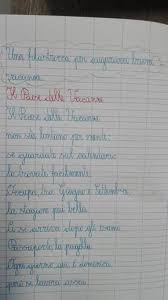 Una filastrocca per augurarvi buone
vacanze
Il Paese delle Vacanze
Il Paese delle Vacanze
non sta lontano per niente:
se guardate sul calendario
lo trovate facilmente.
Occupa, tra Giugno e Settembre,
la stagione più bella.
Ci si arriva dopo gli esami.
Passaporto, la pagella.
Ogni giorno, qui, è domenica,
però si lavora assai: